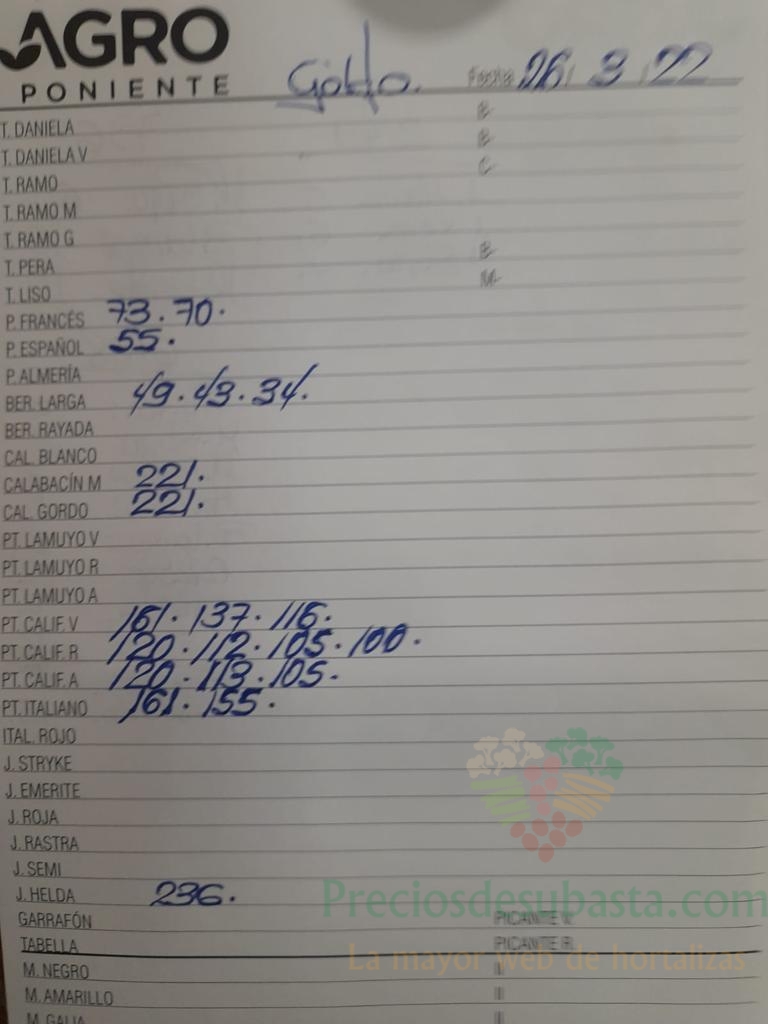 AGRO
PONIENTE
Fecha 26 / 3 / 22
T. DANIELA B
T. DANIELA V B
T. RAMO C
T. RAMO M
T. RAMO G
T. PERA B
T. LISO M
P. FRANCÉS 73. 70.
P. ESPAÑOL 55.
P. ALMERÍA
BER. LARGA 49. 43. 34.
BER. RAYADA
CAL. BLANCO
CALABACÍN M 221.
CAL. GORDO 221.
PT. LAMUYO V
PT. LAMUYO R
PT. LAMUYO A
PT. CALIF. V 161. 137. 116.
PT. CALIF. R 120. 112. 105. 100.
PT. CALIF. A 120. 113. 105.
PT. ITALIANO 161. 155.
ITAL. ROJO
J. STRYKE
J. EMERITE
J. ROJA
J. RASTRA
J. SEMI
J. HELDA 236.
Preciosdesubasta.com
GARRAFÓN PICANTE V.
TABELLA PICANTE R.
La mayor web de hortalizas
M. NEGRO
M. AMARILLO
M. GALIA